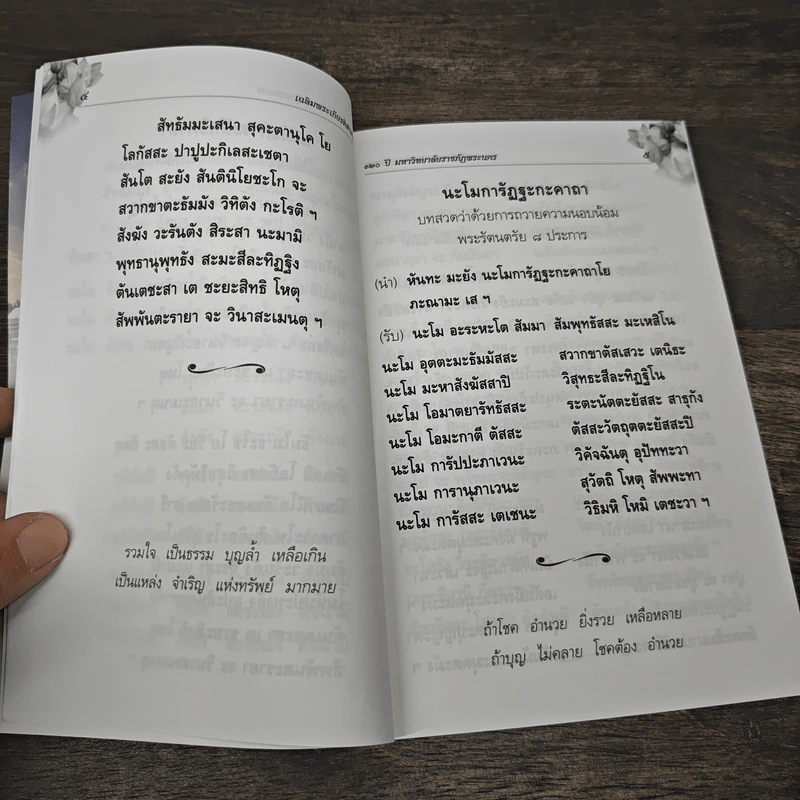 ๔
เฉลิมพระเกียรติ
สัทธัมมะเสนา สุคะตานุโค โย
โลกัสสะ ปาปูปะกิเลสะเชตา
สันโต สะยัง สันตินิโยชะโก จะ
สวากขาตะธัมมัง วิทิตัง กะโรติ ฯ
สังฆัง วะรันตัง สิระสา นะมามิ
พุทธานุพุทธัง สะมะสีละทิฏฐิง
ตันเตชะสา เต ชะยะสิทธิ โหตุ
สัพพันตะรายา จะ วินาสะเมนตุ ฯ
รวมใจ เป็นธรรม บุญล้ำ เหลือเกิน
เป็นแหล่ง จำเริญ แห่งทรัพย์ มากมาย
๑๒๐ ปี มหาวิทยาลัยราชภัฏพระนคร
๕
นะโมการัฏฐะกะคาถา
บทสวดว่าด้วยการถวายความนอบน้อม
พระรัตนตรัย ๘ ประการ
(นำ) หันทะ มะยัง นะโมการัฏฐะกะคาถาโย
ภะณามะ เส ฯ
(รับ) นะโม อะระหะโต สัมมา สัมพุทธัสสะ มะเหสิโน
นะโม อุตตะมะธัมมัสสะ สวากขาตัสเสวะ เตนิธะ
นะโม มะหาสังฆัสสาปิ วิสุทธะสีละทิฏฐิโน
นะโม โอมาตยารัทธัสสะ ระตะนัตตะยัสสะ สาธุกัง
นะโม โอมะกาตี ตัสสะ ตัสสะวัตถุตตะยัสสะปิ
นะโม การัปปะภาเวนะ วิคัจฉันตุ อุปัททะวา
นะโม การานุภาเวนะ สุวัตถิ โหตุ สัพพะทา
นะโม การัสสะ เตเชนะ วิธิมหิ โหมิ เตชะวา ฯ
ถ้าโชค อำนวย ยิ่งรวย เหลือหลาย
ถ้าบุญ ไม่คลาย โชคต้อง อำนวย